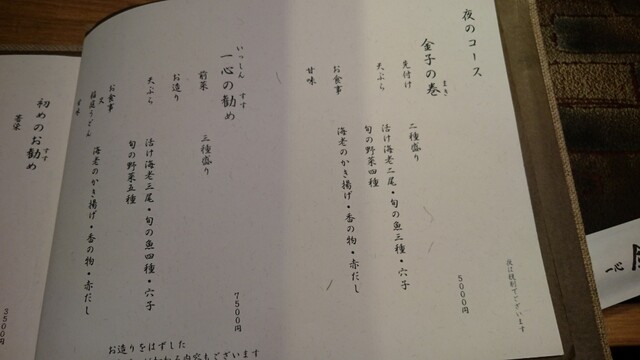 夜のコース
金子の巻
まき
先付け 二種盛り
天ぷら 活け海老二尾・旬の魚三種・穴子
旬の野菜四種
お食事 海老のかき揚げ・香の物・赤だし
甘味
5000円
夜は税別でございます
一心の勧め
いっしん すす
前菜 三種盛り
お造り
天ぷら 活け海老三尾・旬の魚四種・穴子
旬の野菜五種
お食事 海老のかき揚げ・香の物・赤だし
又 稲庭うどん
甘味
7500円
お造りをはずした
内容もございます
初めのお勧め
すす
3500円
一心